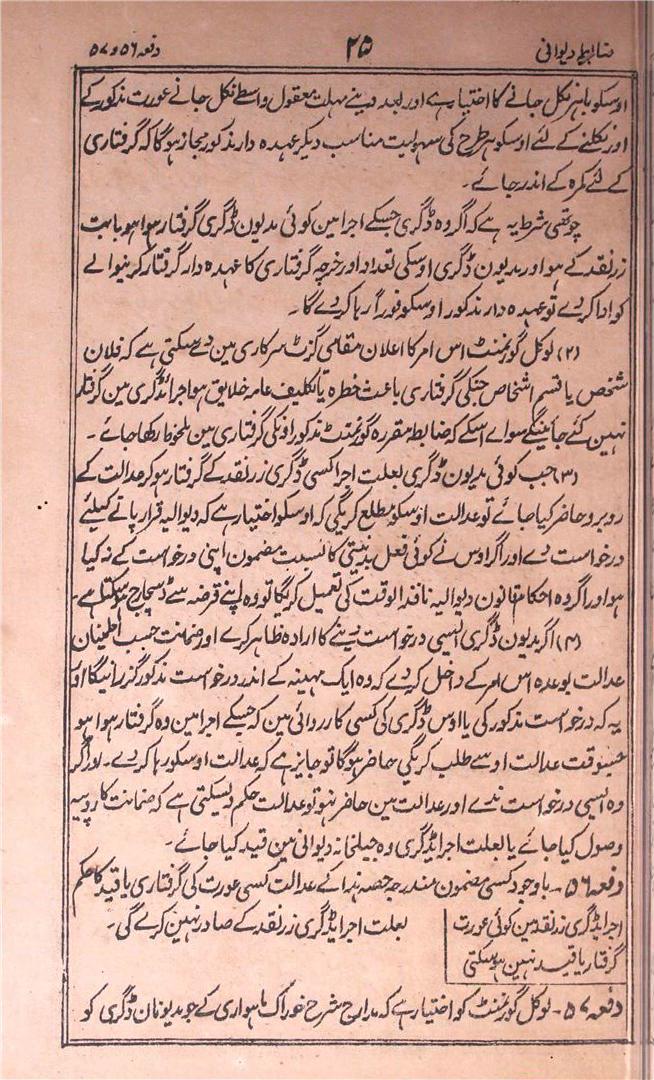 ضابطہ دیوانی ۲۵ دفعہ ۵۶ و ۵۷
اوسکو باہر نکل جانے کا اختیار ہے اور بعد دینے مہلت معقول واسطے نکل جانے عورت مذکور کے
اور نکلنے کے لئے اوسکو ہر طرح کی سہولیت مناسب دیکر عہدہ دار مذکور مجاز ہوگا کہ گرفتاری
کے لئے کمرہ کے اندر جائے۔
چوتھی شرط یہ ہے کہ اگر وہ ڈگری جسکے اجرا مین کوئی مدیون ڈگری گرفتار ہوا ہو بابت
زر نقد کے ہو اور مدیون ڈگری اوسکی تعداد اور خرچہ گرفتاری کا عہدہ دار گرفتار کرنیوالے
کو ادا کر دے تو عہدہ دار مذکور اوسکو فوراً رہا کر دے گا۔
(۲) لوکل گورنمنٹ اس امر کا اعلان مقامی گزٹ سرکاری مین دے سکتی ہے کہ فلان
شخص یا قسم اشخاص جنکی گرفتاری باعث خطرہ یا تکلیف عامہ خلایق ہو اجرا ڈگری مین گرفتار
نہین کئے جائینگے سواے اسکے کہ ضابطہ مقررہ گورنمنٹ مذکور اونکی گرفتاری مین ملحوظ رکھا جائے۔
(۳) جب کوئی مدیون ڈگری بعلت اجرا کسی ڈگری زر نقد کے گرفتار ہو کر عدالت کے
روبرو حاضر کیا جائے تو عدالت اوسکو مطلع کریگی کہ اوسکو اختیار ہے کہ دیوالیہ قرار پانے کیلیئے
درخواست دے اور اگر اوس نے کوئی فعل بدنیتی کا نسبت مضمون اپنی درخواست کے نہ کیا
ہو اور اگر وہ احکام قانون دیوالیہ نافذ الوقت کی تعمیل کریگا تو وہ اپنے قرضہ سے ڈسچارج ہو سکتا ہے۔
(۴) اگر مدیون ڈگری ایسی درخواست دینے کا ارادہ ظاہر کرے اور ضمانت حسب اطمینان
عدالت بوعدہ اس امر کے داخل کر دے کہ وہ ایک مہینہ کے اندر درخواست مذکور گزرانیگا اور
یہ کہ درخواست مذکور کی یا اوس ڈگری کی کسی کارروائی مین کہ جسکے اجرا مین وہ گرفتار ہوا ہو
جسوقت عدالت اوسے طلب کریگی حاضر ہوگا تو جایز ہے کہ عدالت اوسکو رہا کر دے۔ اور اگر
وہ ایسی درخواست ندے اور عدالت مین حاضر نہو تو عدالت حکم دیسکتی ہے کہ ضمانت کا روپیہ
وصول کیا جائے یا بعلت اجرا ڈگری وہ جیلخانہ دیوانی مین قید کیا جائے۔
دفعہ ۵۶۔ باوجود کسی مضمون مندرجہ حصہ ہذا کے عدالت کسی عورت کی گرفتاری یا قید کا حکم
بعلت اجرا ڈگری زر نقد کے صادر نہین کرے گی۔
اجرا ڈگری زر نقد مین کوئی عورت
گرفتار یا قید نہین ہو سکتی
دفعہ ۵۷۔ لوکل گورنمنٹ کو اختیار ہے کہ مدارج شرح خوراک ماہواری کے جو مدیونان ڈگری کو